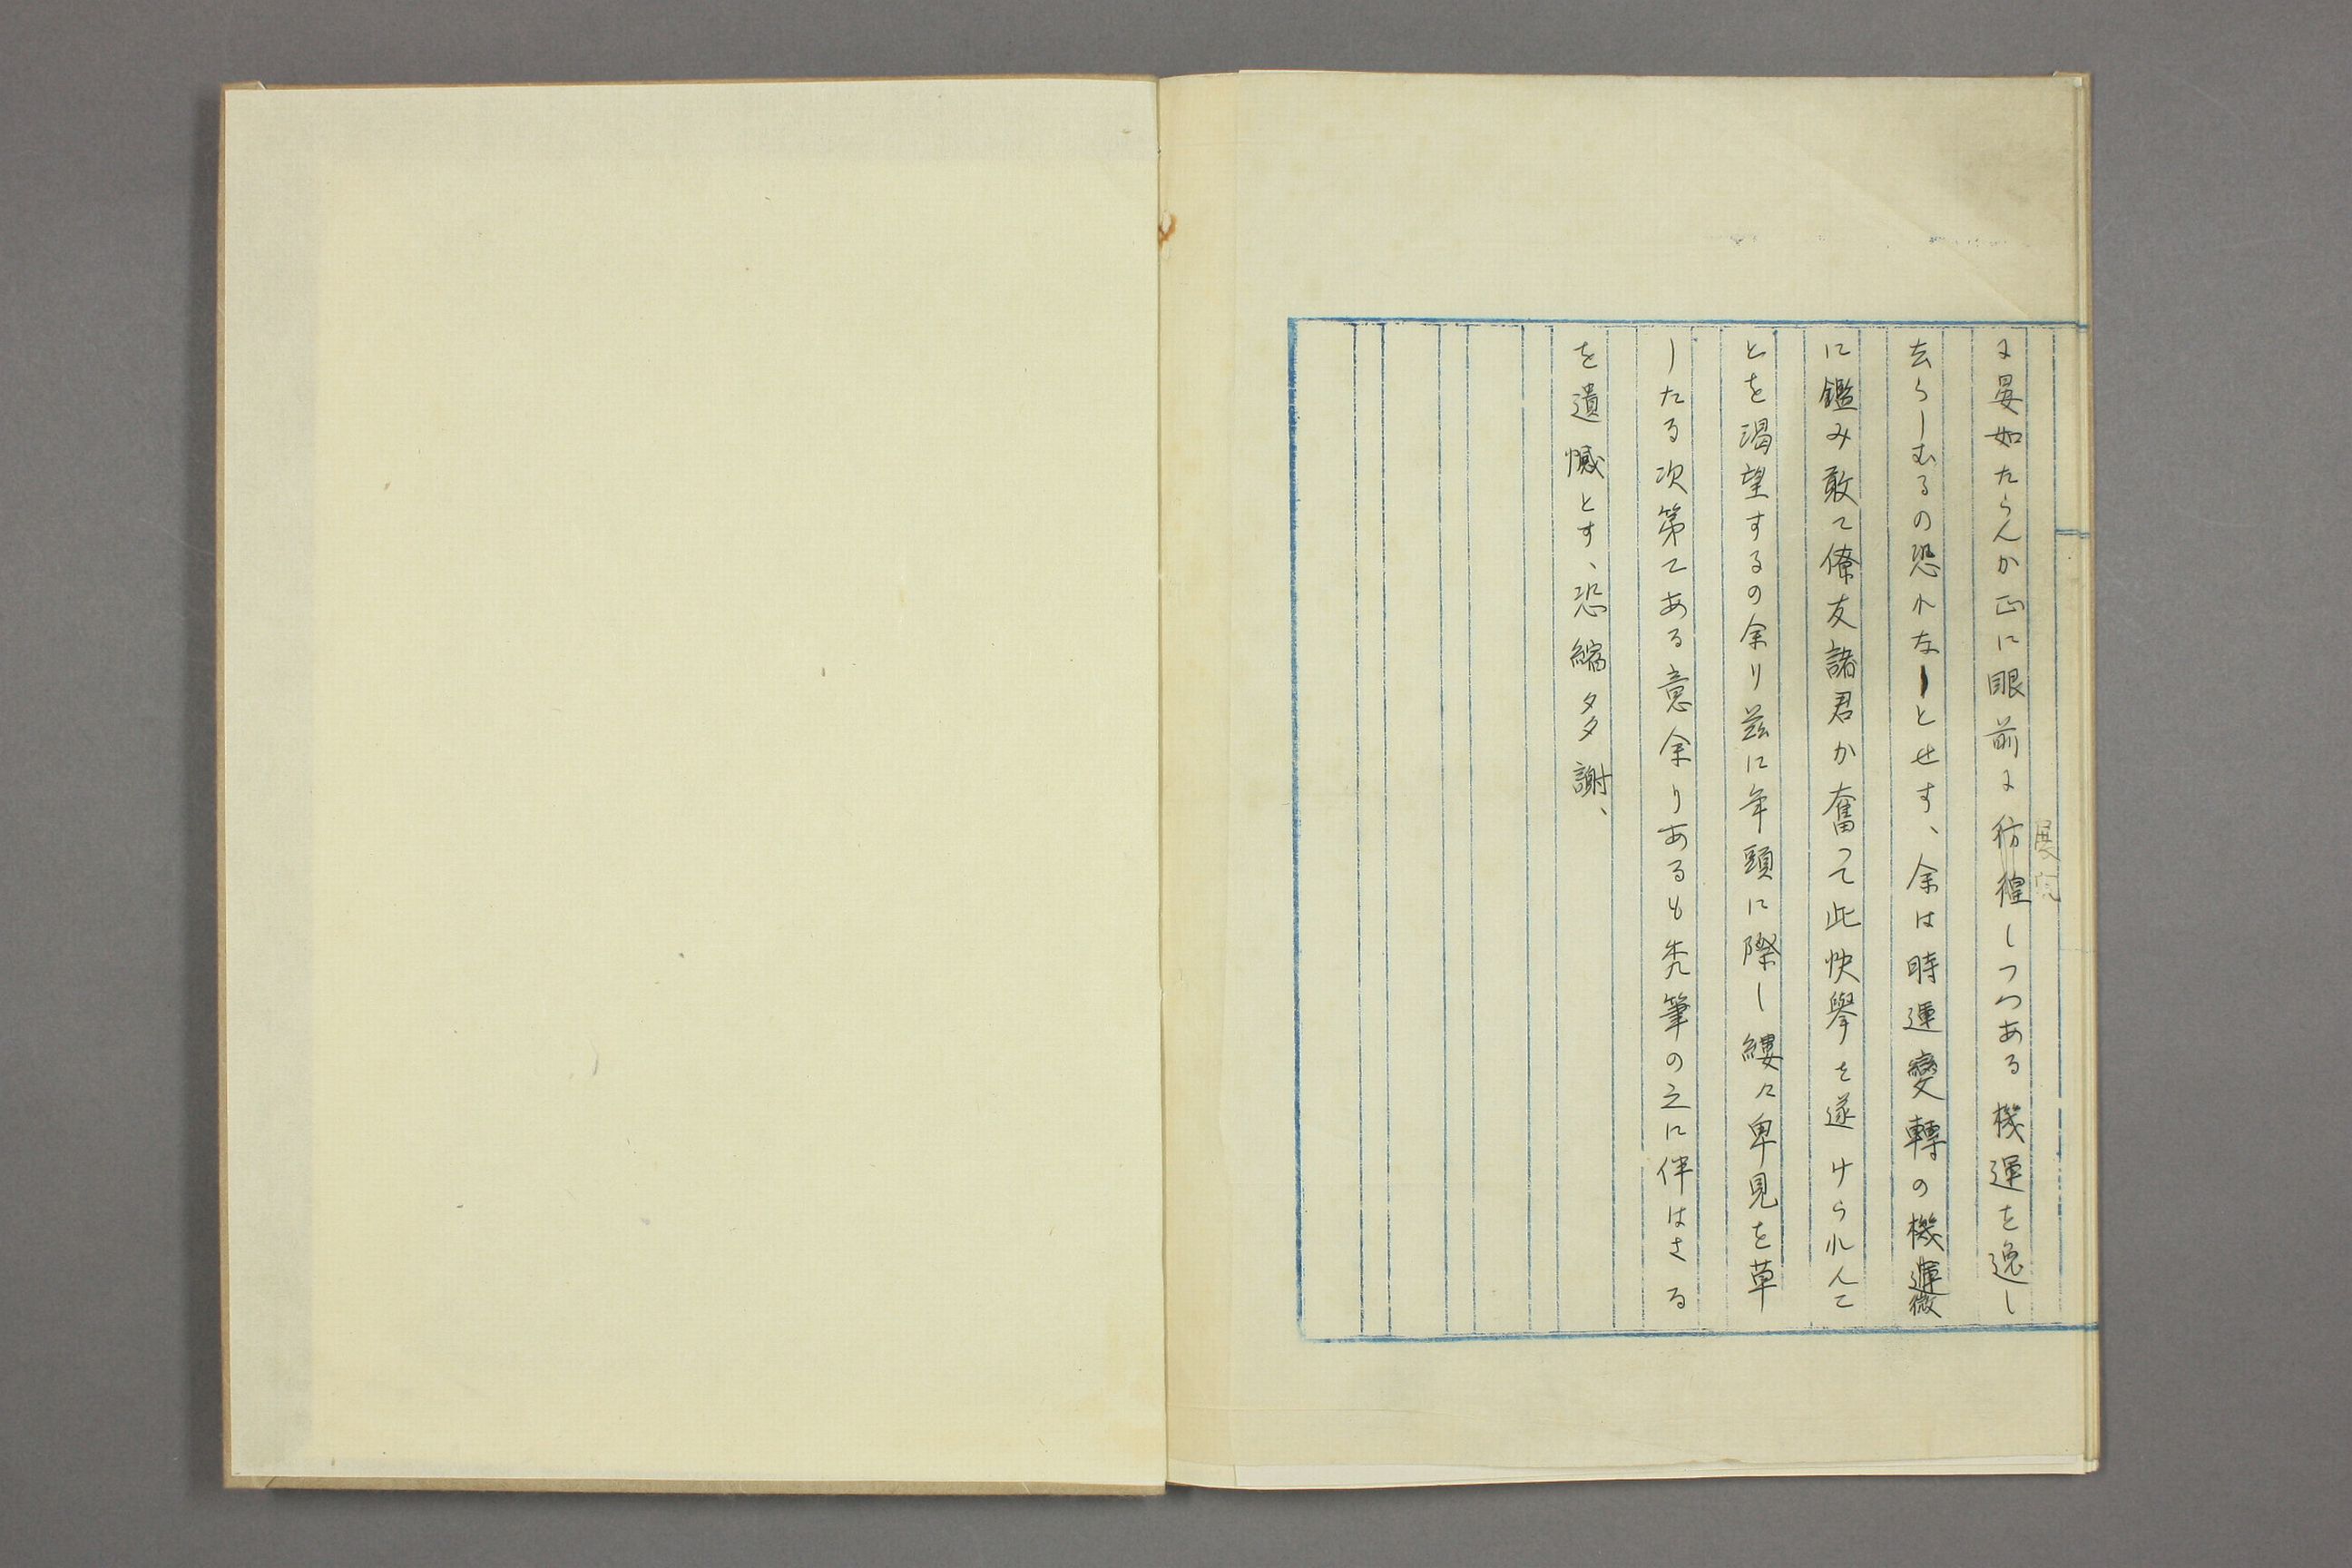 に晏如たらんか正に眼前に彷徨しつつある機運を逸し
展
去らしむるの恐れなしとせす、余は時運變轉の機微
に鑑み敢て僚友諸君か奮って此快擧を遂けられんこ
とを渇望するの余り茲に年頭に際し縷々卑見を草
したる次第てある意余りあるも禿筆の之に伴はさる
を遺憾とす、恐縮多謝、